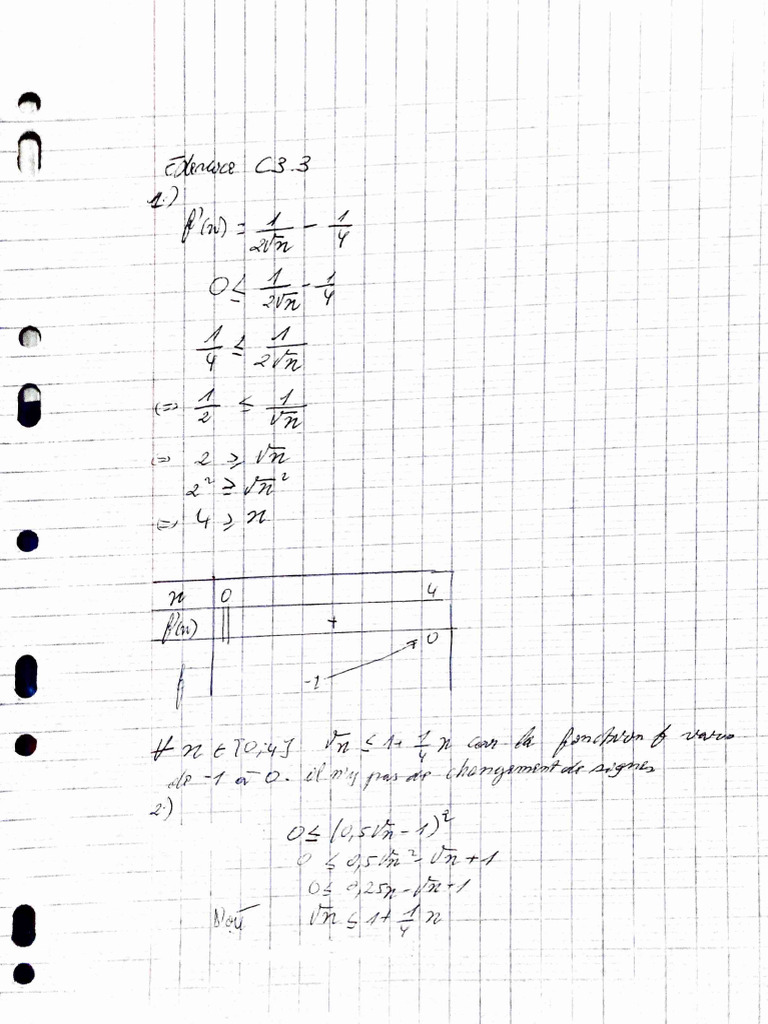 Exercice C3.3
1.)
f'(x) = 1/(2√x) - 1/4
0 ≤ 1/(2√x) - 1/4
1/4 ≤ 1/(2√x)
(=> 1/2 ≤ 1/√x
(=> 2 ≥ √x
2² ≥ √x²
(=> 4 ≥ x
x 0 4
f'(x) || +
f -1 0
∀ x ∈ [0;4] √x ≤ 1 + 1/4 x car la fonction f varie
de -1 à 0. il n'y pas de changement de signes
2.)
0 ≤ (0,5√x - 1)²
0 ≤ 0,5√x² - √x + 1
0 ≤ 0,25x - √x + 1
√x ≤ 1 + 1/4 x